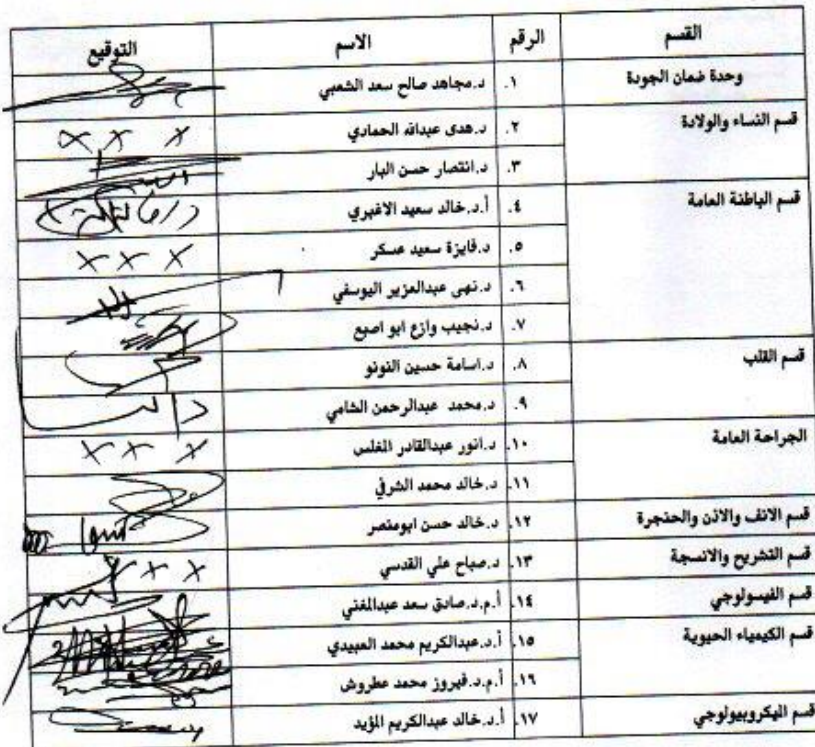 القسم الرقم الاسم التوقيع
وحدة ضمان الجودة ١. د.مجاهد صالح سعد الشعبي
قسم النساء والولادة ٢. د.هدى عبدالله الحمادي × × ×
٣. د.انتصار حسن البار
قسم الباطنة العامة ٤. أ.د.خالد سعيد الاغبري
٥. د.فايزة سعيد عسكر × × ×
٦. د.نهى عبدالعزيز اليوسفي
٧. د.نجيب وازع ابو اصبع
قسم القلب ٨. د.اسامة حسين النونو
٩. د.محمد عبدالرحمن الشامي
الجراحة العامة ١٠. د.انور عبدالقادر المغلس × × ×
١١. د.خالد محمد الشرفي
قسم الانف والاذن والحنجرة ١٢. د.خالد حسن ابومنصر
قسم التشريح والانسجة ١٣. د.صباح علي القدسي × × ×
قسم الفيسولوجي ١٤. أ.م.د.صادق سعد عبدالمغني
قسم الكيمياء الحيوية ١٥. أ.د.عبدالكريم محمد العبيدي
١٦. أ.م.د.فيروز محمد عطروش
قسم الميكروبيولوجي ١٧. أ.د.خالد عبدالكريم المؤيد